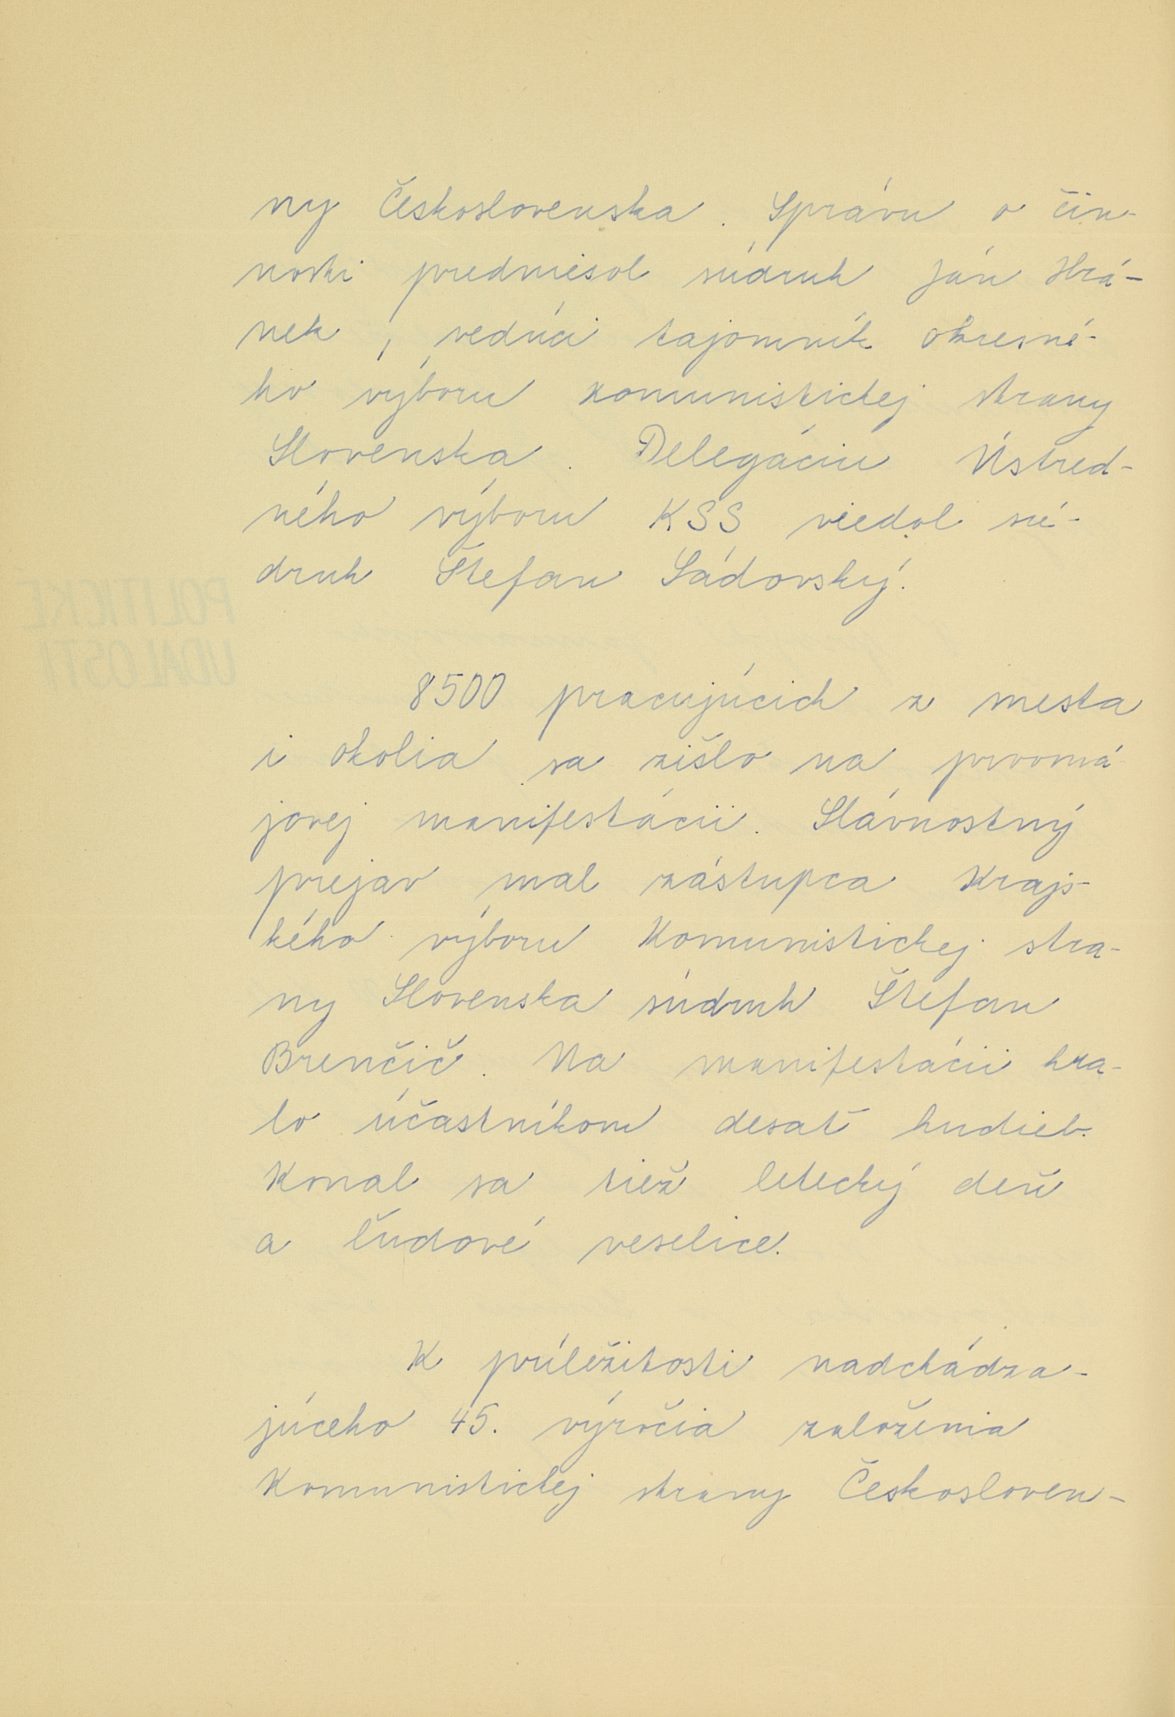 ny Československa. Správu o čin-
nosti predniesol súdruh Ján Hrá-
nek, vedúci tajomník okresné-
ho výboru komunistickej strany
Slovenska. Delegáciu Ústred-
ného výboru KSS viedol sú-
druh Štefan Sádovský.
POLITICKÉ
UDALOSTI
8500 pracujúcich z mesta
i okolia sa zišlo na prvomá
jovej manifestácii. Slávnostný
prejav mal zástupca Krajs-
kého výboru Komunistickej stra-
ny Slovenska súdruh Štefan
Brenčič. Na manifestácii hra-
lo účastníkom desať hudieb.
Konal sa tiež letecký deň
a ľudové veselice.
K príležitosti nadchádza-
júceho 45. výročia založenia
Komunistickej strany Českosloven-